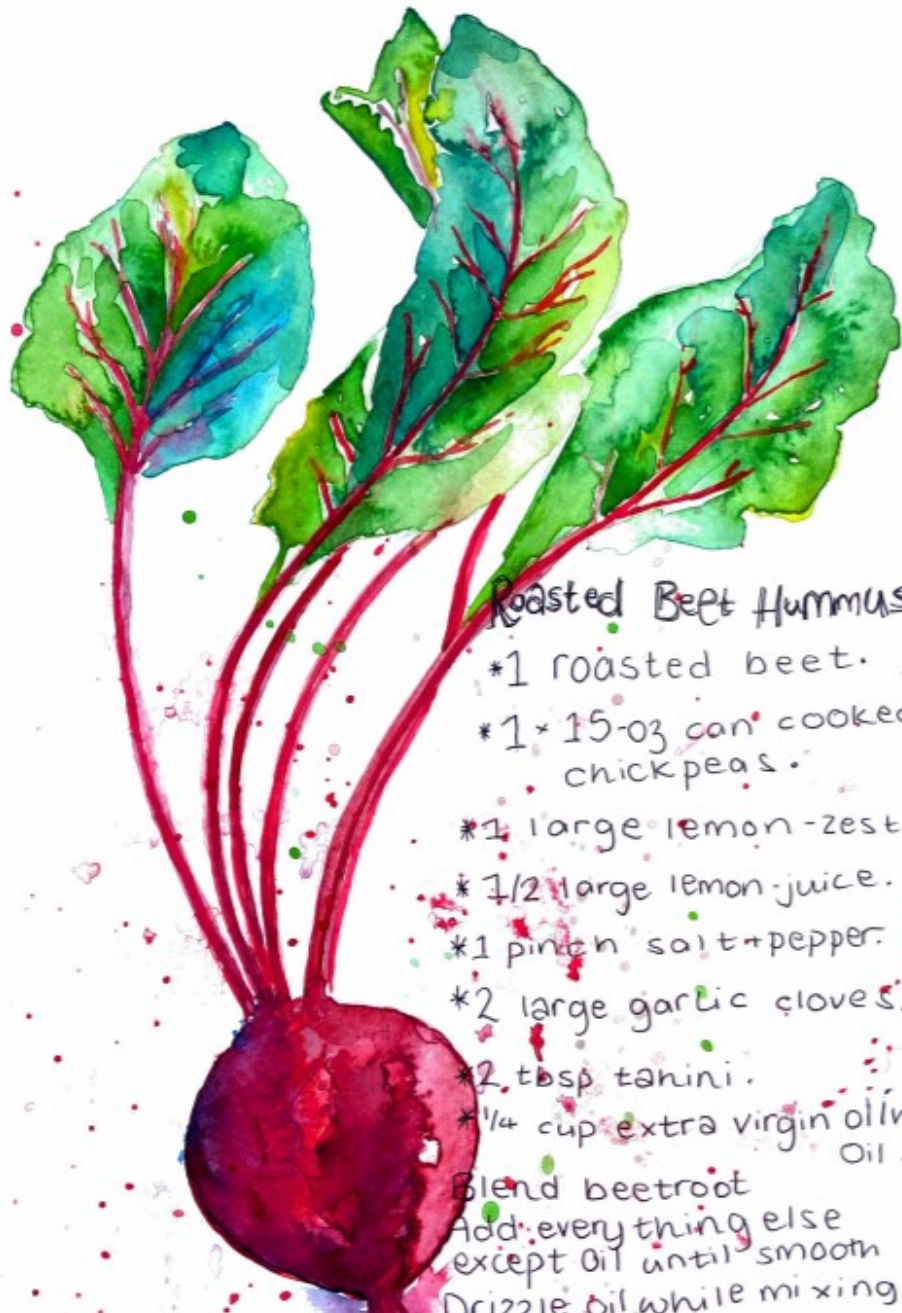 Roasted Beet Hummus
*1 roasted beet.
*1 × 15-oz can cooked
chickpeas.
*1 large lemon-zest
* 1/2 large lemon-juice.
*1 pinch salt+pepper.
*2 large garlic cloves.
*2 tbsp tahini.
*1/4 cup extra virgin oliv
Oil.
Blend beetroot
Add everything else
except oil until smooth
Drizzle oil while mixing